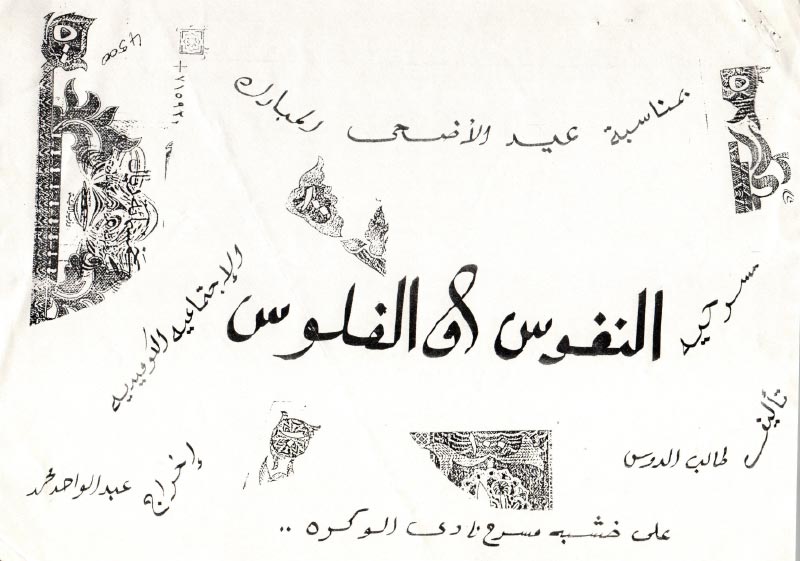 بمناسبة عيد الأضحى المبارك
مسرحيه
النفوس أو الفلوس
الإجتماعيه الكوميديه
تأليف
طالب الدوس
إخراج
عبدالواحد محمد
على خشبه مسرح نادى الوكره ..